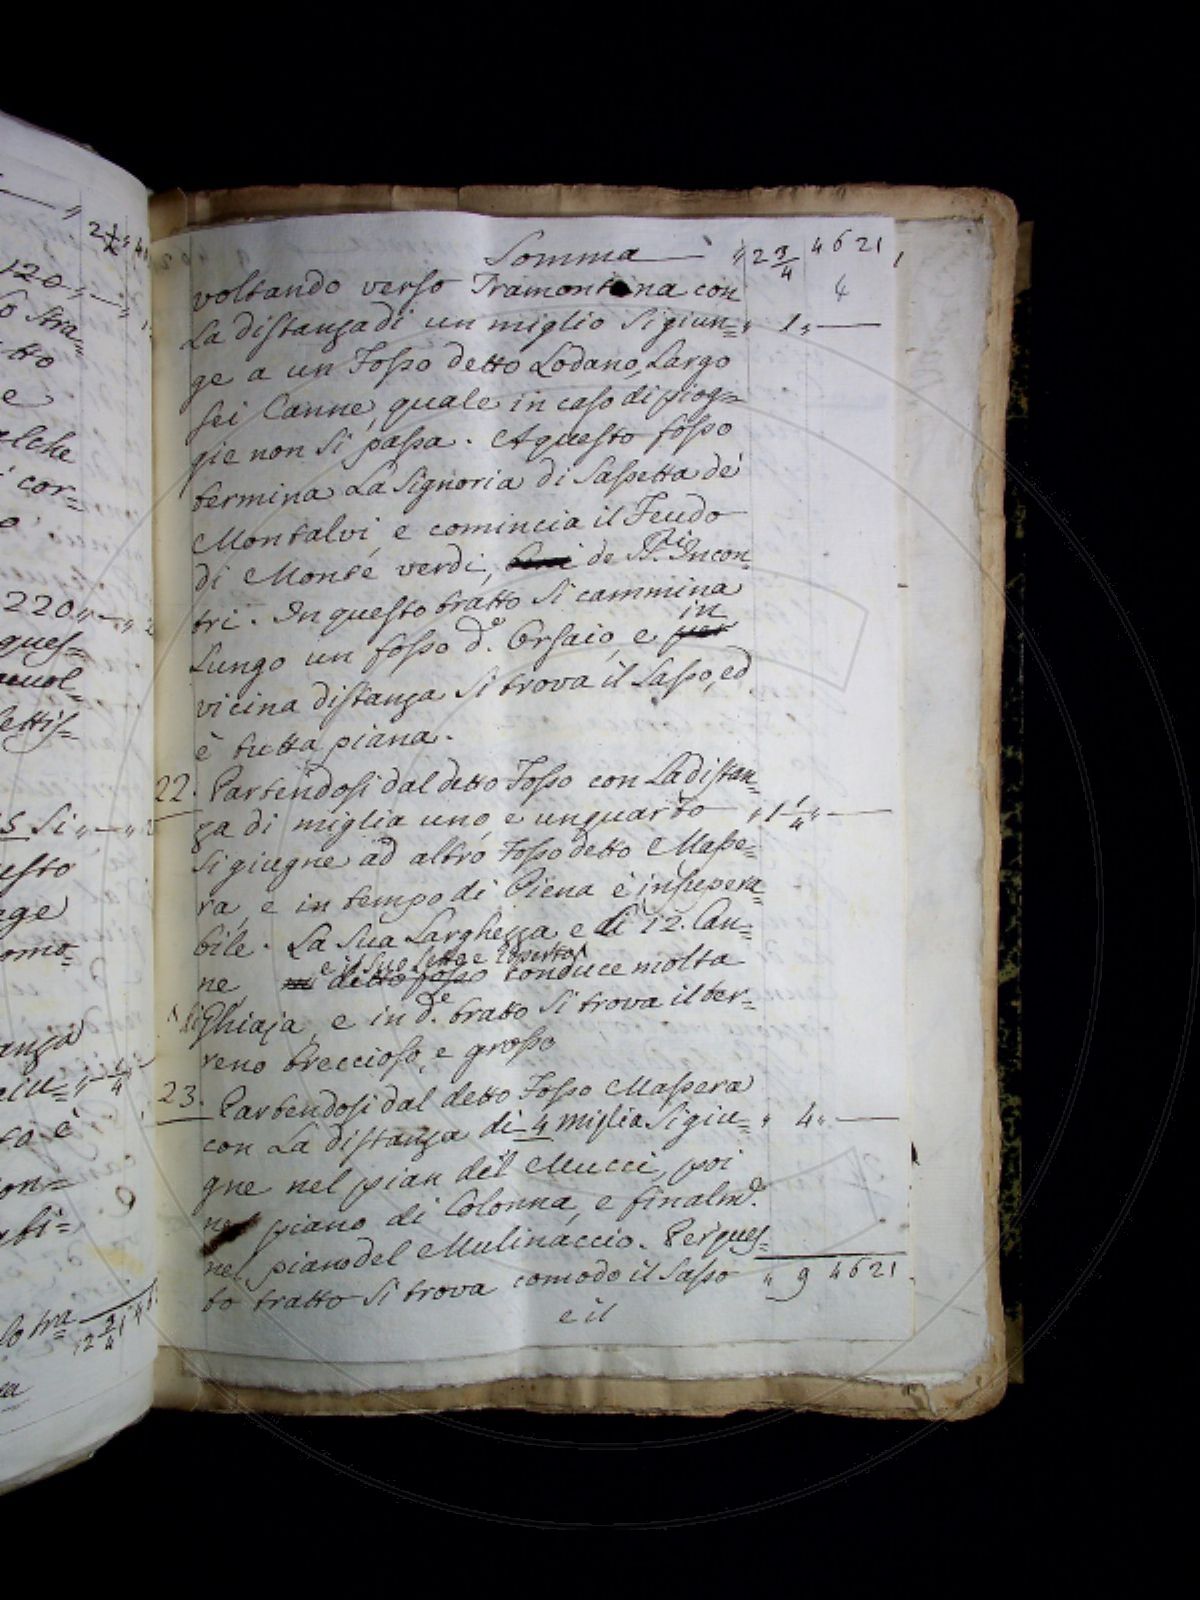 Somma — „ 2 3/4 4621
voltando verso Tramontana con 4
La distanza di un miglio si giun= „ 1 „ —
ge a un Fosso detto Lodano, Largo
sei Canne, quale in caso di piog=
gie non si passa. A questo fosso
termina La Signoria di Sassetta de'
Montalvi, e comincia il Feudo
di Monte verdi, de SS.ri Incon=
tri. In questo tratto si cammina
Lungo un fosso d.o Orsaio, e per in
vicina distanza si trova il Sasso, ed
è tutta piana.
22. Partendosi dal detto Fosso con La distan=
za di miglia uno, e un quarto „ 1 1/4 „ —
si giugne ad altro Fosso detto Masse=
ra, e in tempo di Piena è insupera=
bile. La Sua Larghezza e di 12. Can=
ne e il suo Letto e Coperto
detto fosso conduce molta
di Ghiaja, e in d.o tratto si trova il ter=
reno breccioso, e grosso
23. Partendosi dal detto Fosso Massera
con La distanza di 4 miglia si giu= „ 4 „ —
gne nel pian del Mucci, poi
nel piano di Colonna, e finalm.e
nel piano del Mulinaccio. Per ques=
to tratto si trova comodo il Sasso „ 9 4621
e il
2 1/2 „ 4
120 „ —
Stra=
tto
e
alche
cor=
220 „ — „ 2
ques=
Si „ — „
esto
age
omo=
anza
giu= „ 1/4
to è
on=
abi=
lo tra=
2 3/4 46